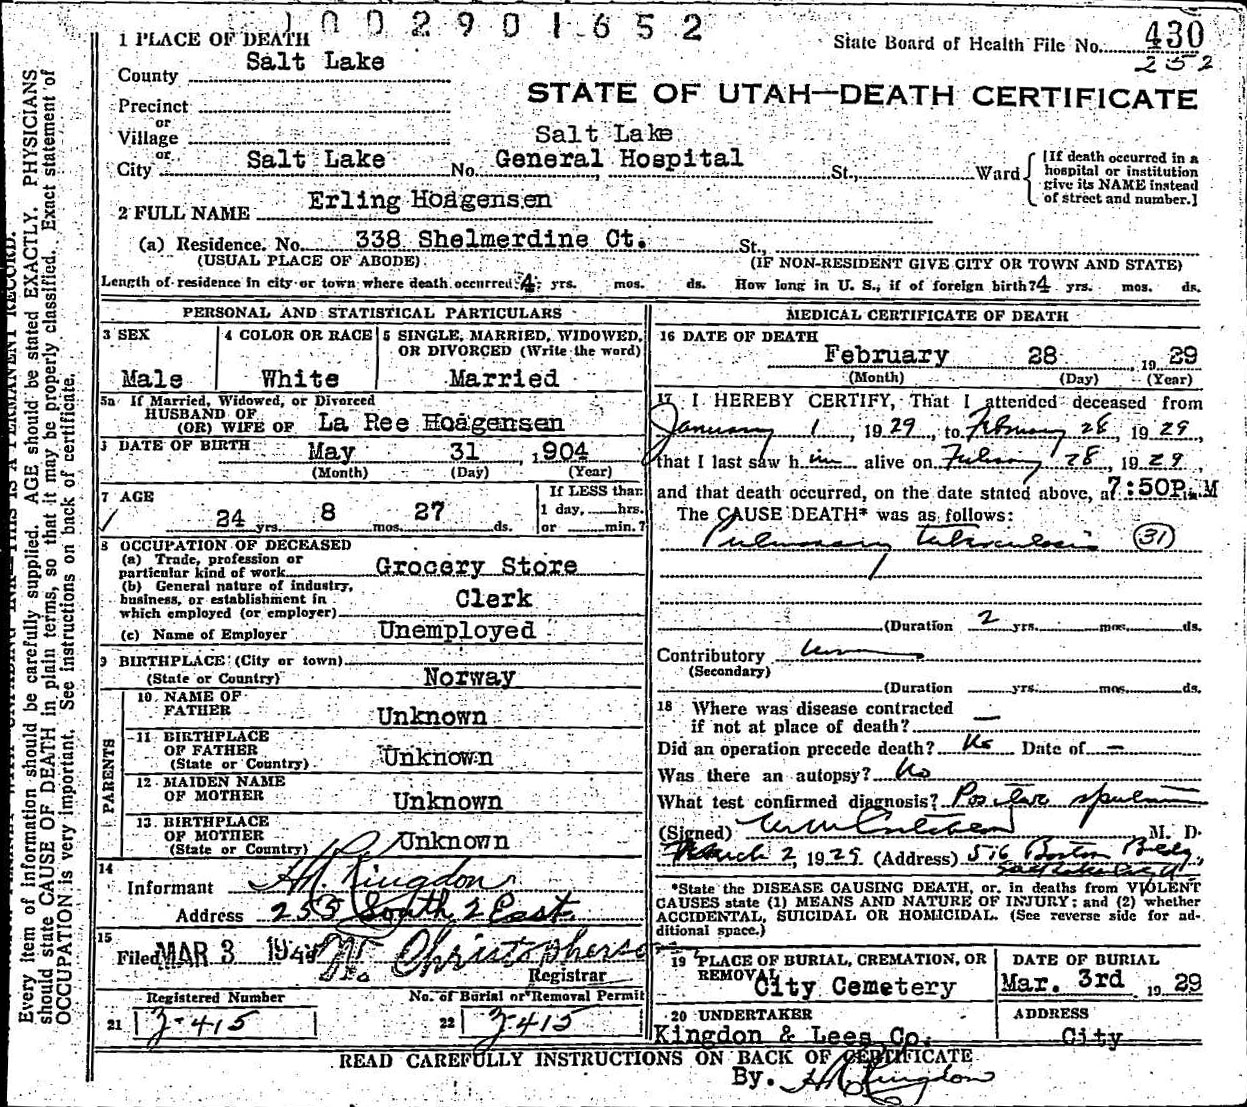 1002901652
State Board of Health File No. 430
252
STATE OF UTAH—DEATH CERTIFICATE
1 PLACE OF DEATH
County Salt Lake
Precinct
or
Village
or
City Salt Lake No. Salt Lake General Hospital St., Ward
[If death occurred in a hospital or institution give its NAME instead of street and number.]
2 FULL NAME Erling Hoagensen
(a) Residence. No. 338 Shelmerdine Ct. St.,
(USUAL PLACE OF ABODE) (IF NON-RESIDENT GIVE CITY OR TOWN AND STATE)
Length of residence in city or town where death occurred 4 yrs. mos. ds. How long in U. S., if of foreign birth? 4 yrs. mos. ds.
PERSONAL AND STATISTICAL PARTICULARS
3 SEX Male
4 COLOR OR RACE White
5 SINGLE, MARRIED, WIDOWED, OR DIVORCED (Write the word) Married
5a If Married, Widowed, or Divorced
HUSBAND OF
(OR) WIFE OF La Ree Hoagensen
DATE OF BIRTH May 31 , 1904
(Month) (Day) (Year)
7 AGE 24 yrs. 8 mos. 27 ds.
If LESS than
1 day, hrs.
or min.?
8 OCCUPATION OF DECEASED
(a) Trade, profession or
particular kind of work Grocery Store
(b) General nature of industry,
business, or establishment in
which employed (or employer) Clerk
(c) Name of Employer Unemployed
9 BIRTHPLACE (City or town)
(State or Country) Norway
PARENTS
10. NAME OF
FATHER Unknown
11 BIRTHPLACE
OF FATHER
(State or Country) Unknown
12 MAIDEN NAME
OF MOTHER Unknown
13. BIRTHPLACE
OF MOTHER
(State or Country) Unknown
14
Informant H R Kingdon
Address 255 South 2 East
15
Filed MAR 3
Registrar
Registered Number No. of Burial or Removal Permit
21 Z-415 22 Z-415
MEDICAL CERTIFICATE OF DEATH
16 DATE OF DEATH
February 28 19 29
(Month) (Day) (Year)
17 I HEREBY CERTIFY, That I attended deceased from
January 1, 1929, to February 28, 1929,
that I last saw him alive on February 28, 1929,
and that death occurred, on the date stated above, at 7:50P. M
The CAUSE DEATH* was as follows:
Pulmonary tuberculosis (31)
(Duration 2 yrs. mos. ds.
Contributory
(Secondary)
(Duration yrs. mos. ds.
18 Where was disease contracted
if not at place of death? —
Did an operation precede death? No Date of —
Was there an autopsy? No
What test confirmed diagnosis? Positive sputum
(Signed) M. D.
March 2, 1929. (Address) 516 Boston Bldg,
Salt Lake City U
*State the DISEASE CAUSING DEATH, or, in deaths from VIOLENT
CAUSES state (1) MEANS AND NATURE OF INJURY; and (2) whether
ACCIDENTAL, SUICIDAL OR HOMICIDAL. (See reverse side for ad-
ditional space.)
19 PLACE OF BURIAL, CREMATION, OR
REMOVAL City Cemetery
DATE OF BURIAL
Mar. 3rd , 19 29
20 UNDERTAKER
Kingdon & Lees Co.
ADDRESS
City
READ CAREFULLY INSTRUCTIONS ON BACK OF CERTIFICATE
By. H R Kingdon
Every item of information should be carefully supplied. AGE should be stated EXACTLY. PHYSICIANS
should state CAUSE OF DEATH in plain terms, so that it may be properly classified. Exact statement of
OCCUPATION is very important. See instructions on back of certificate.